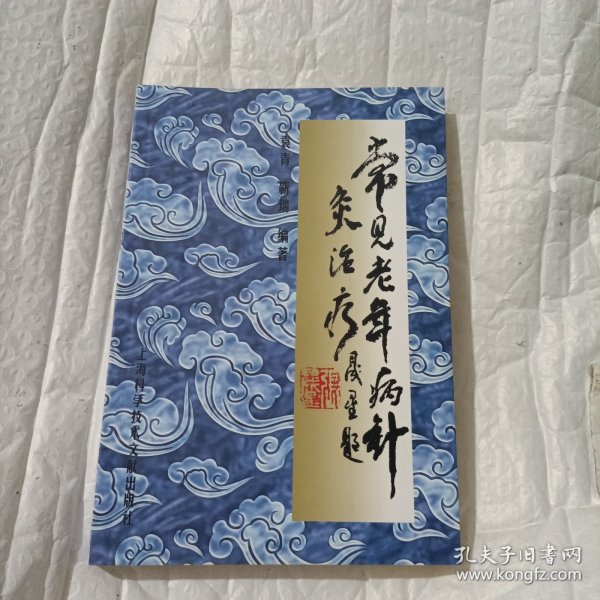 常见老年病针
灸治疗
晟星题
袁青 靳瑞 编著
上海科学技术文献出版社
孔夫子旧书网
www.kongfz.com